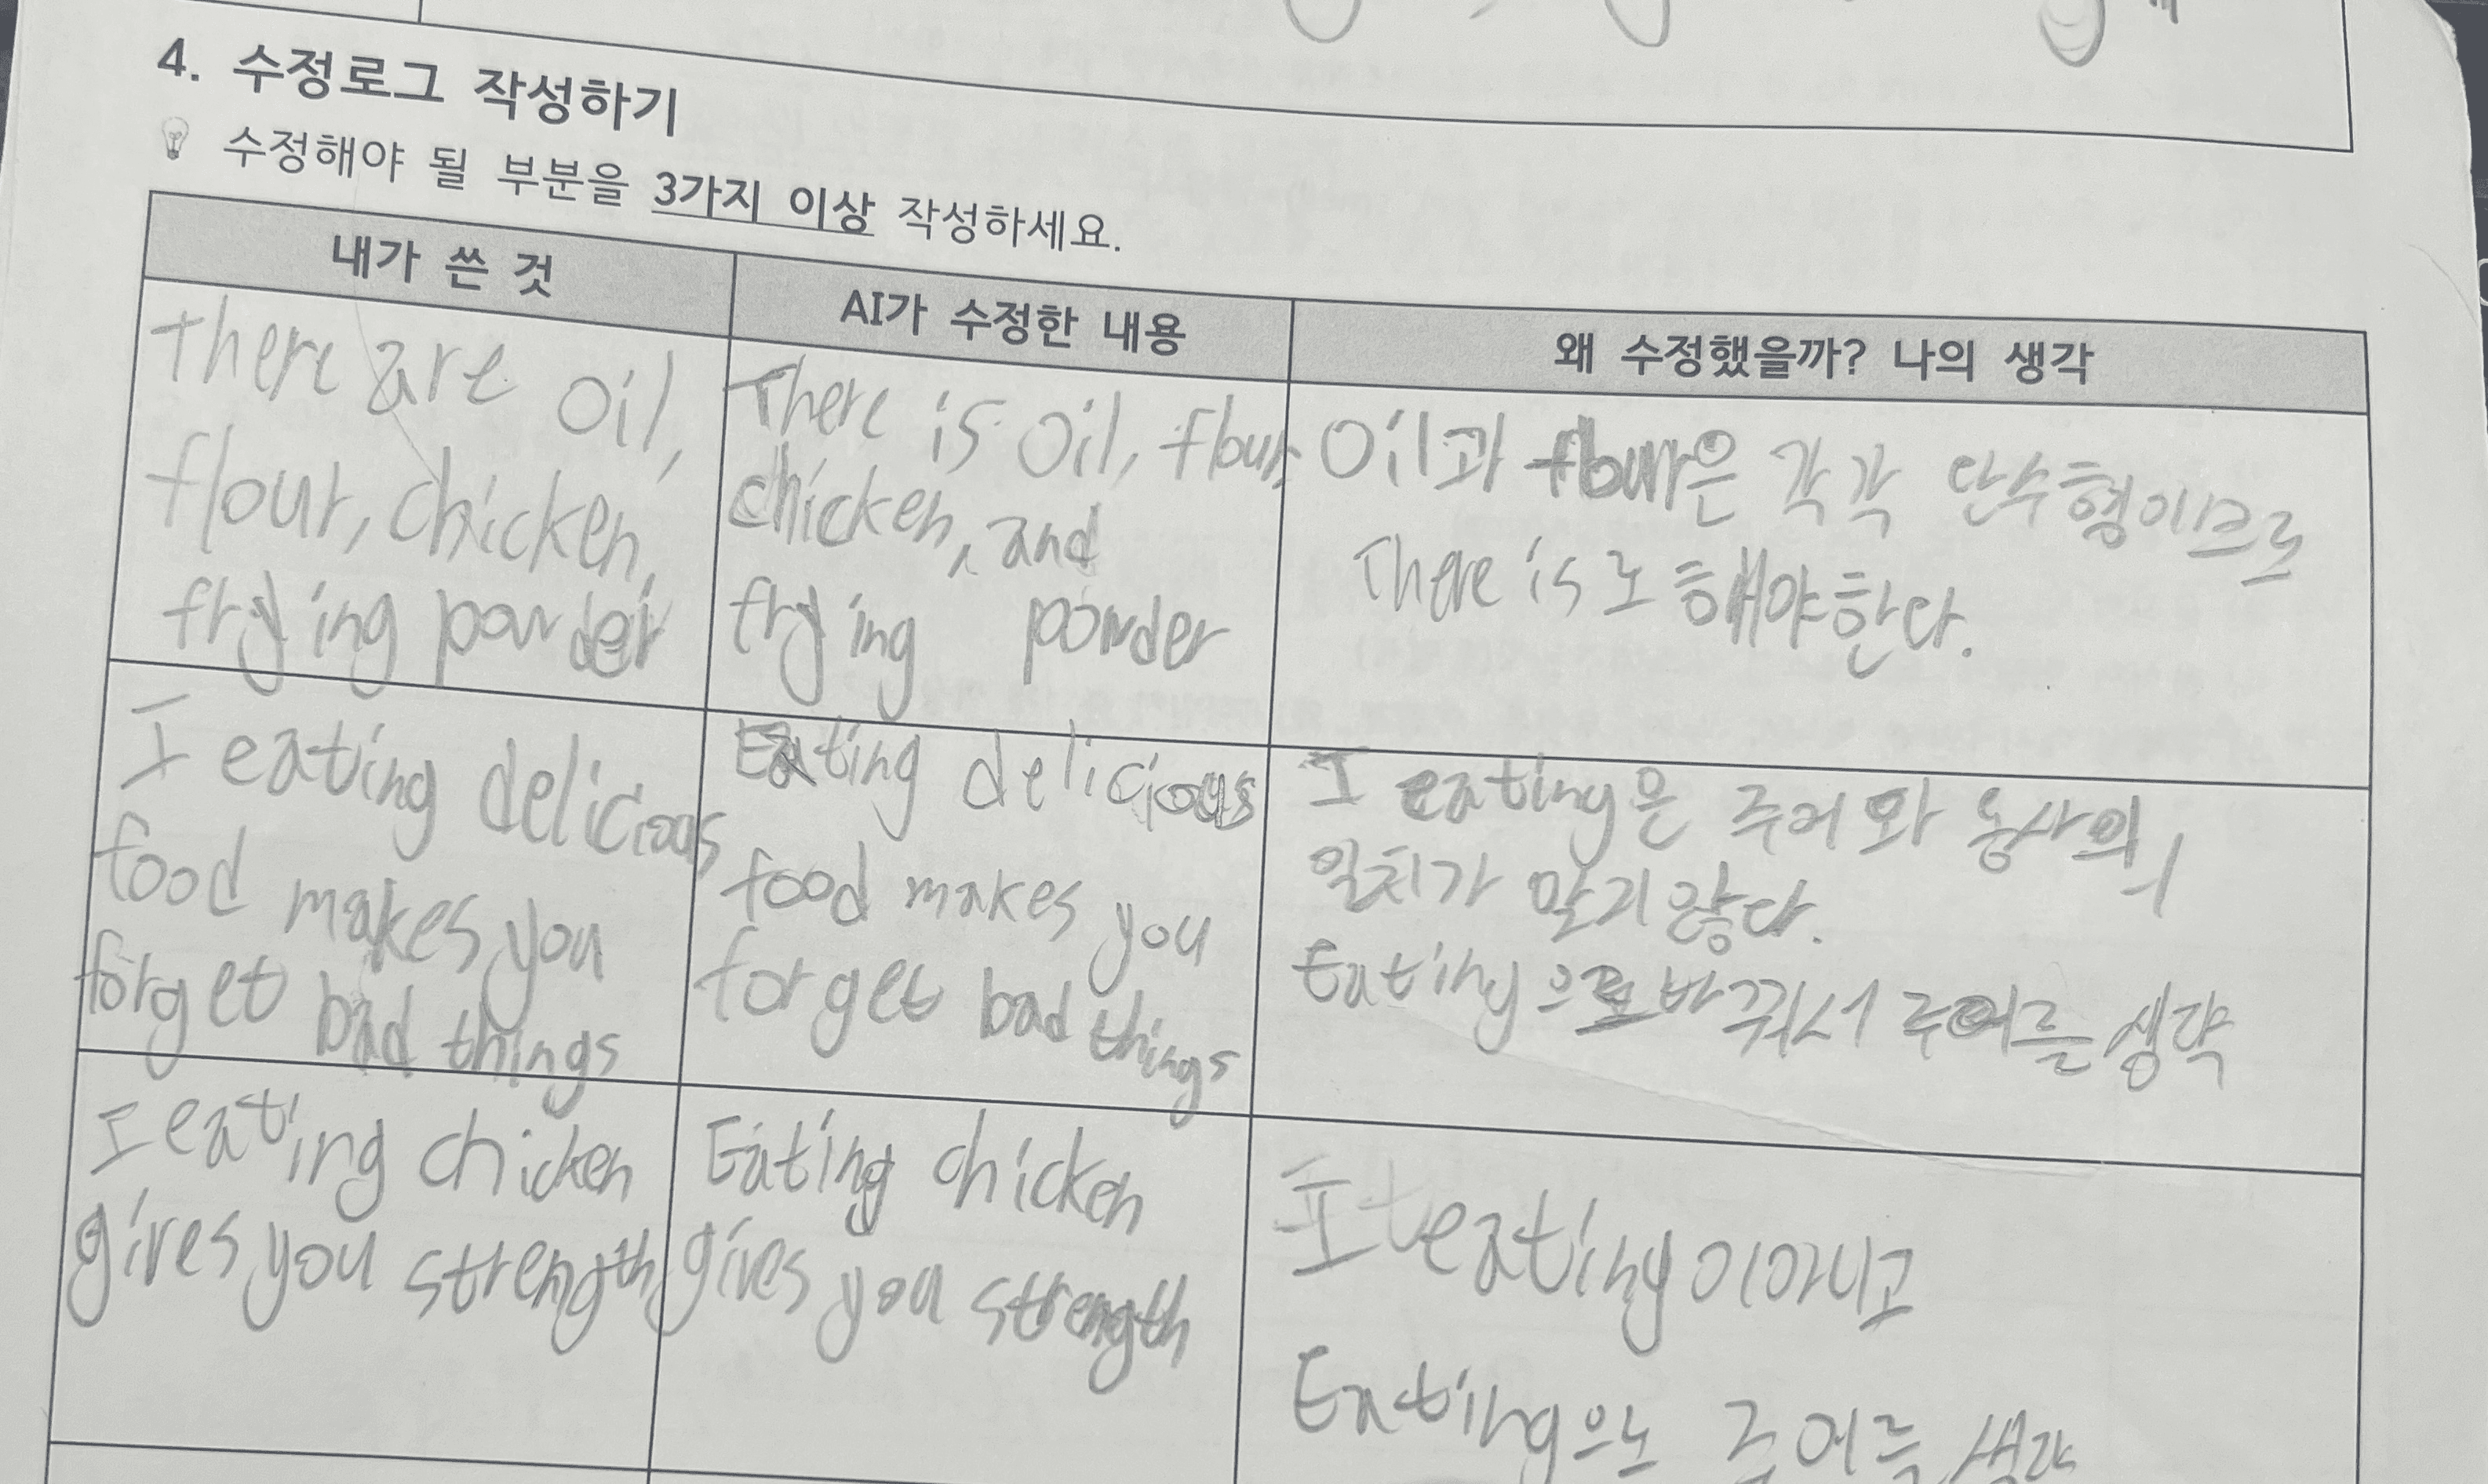 4. 수정로그 작성하기
수정해야 될 부분을 3가지 이상 작성하세요.
내가 쓴 것
AI가 수정한 내용
왜 수정했을까? 나의 생각
there are oil,
flour, chicken,
frying powder
There is oil, flour,
chicken, and
frying powder
Oil과 flour은 각각 단수형이므로
There is로 해야한다.
I eating delicious
food makes you
forget bad things
Eating delicious
food makes you
forget bad things
I eating은 주어와 동사의
일치가 맞지 않다.
Eating으로 바꿔서 주어를 생략
I eating chicken
gives you strength
Eating chicken
gives you strength
I eating이아니고
Eating으로 주어를 생략